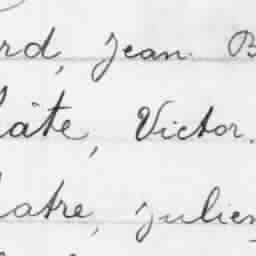 rd, Jean. B
âte, Victor.
atre, Julien